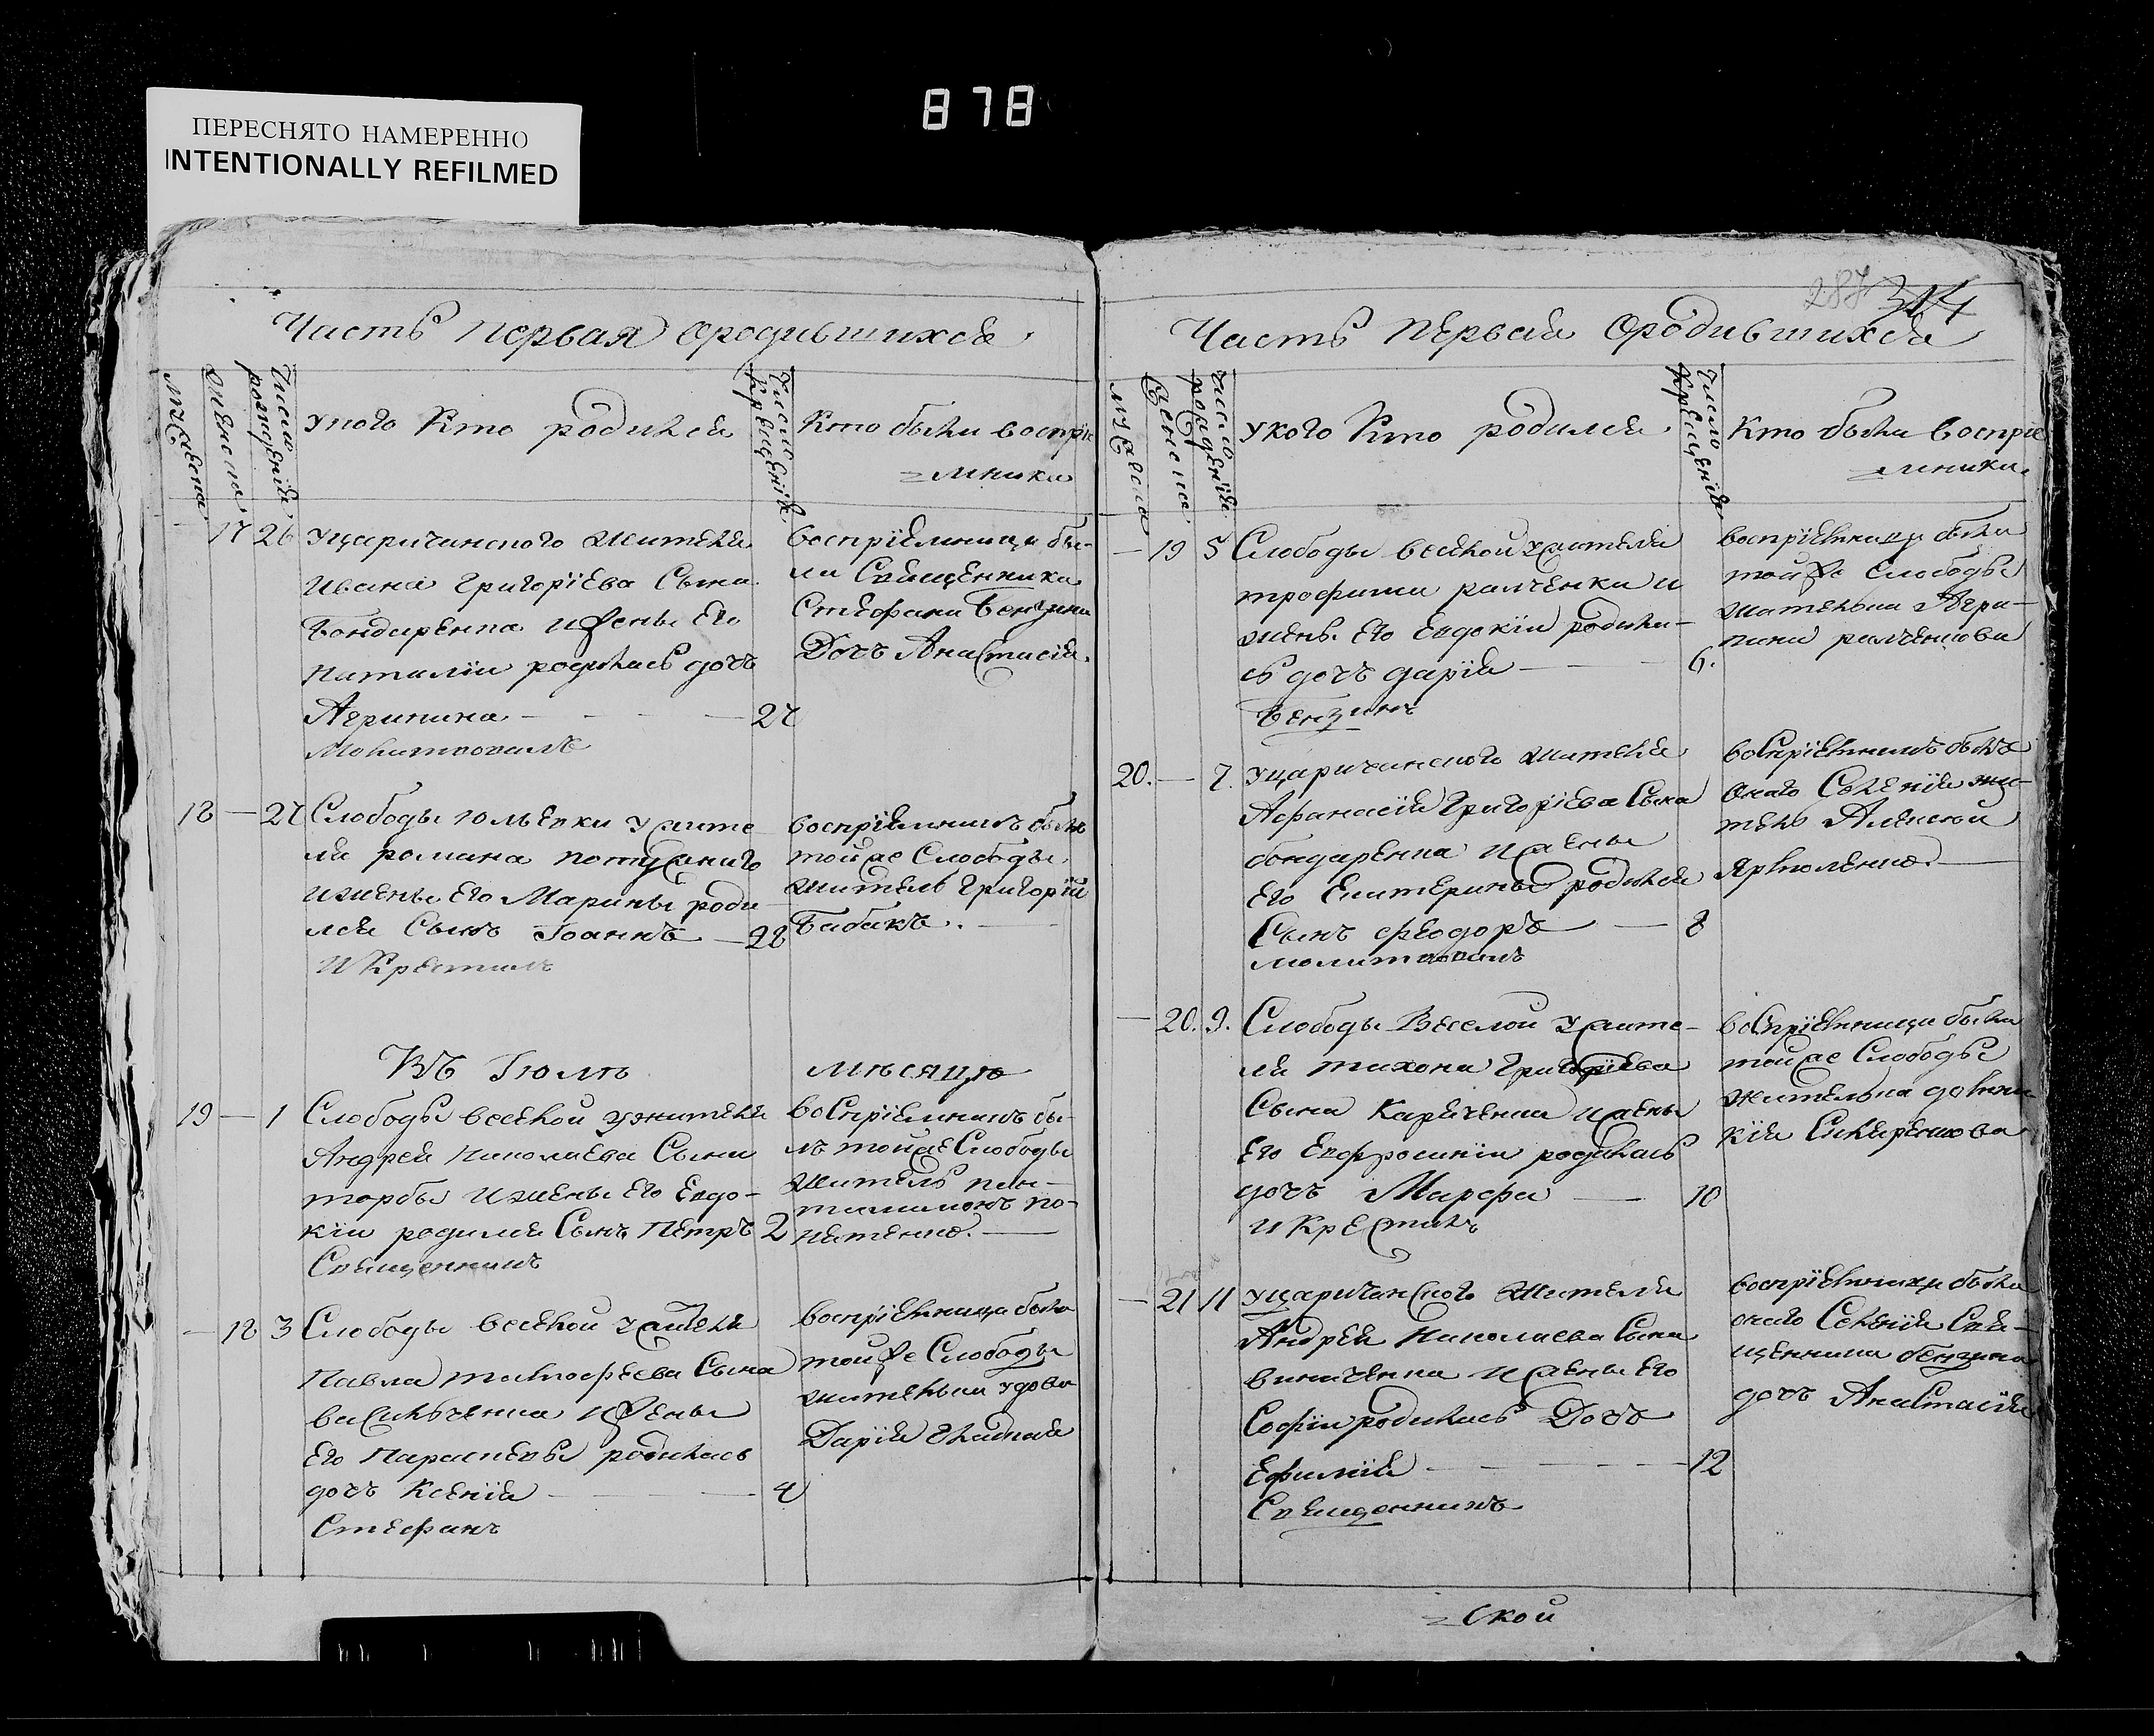 878
ПЕРЕСНЯТО НАМЕРЕННО
INTENTIONALLY REFILMED
Часть первая ородившихся
мужеска
женска
число рождения
у кого кто родился
число крещения
Кто были восприе
=мники
17 26 Уцаричанского жителя
Ивана Григоріева Сына
Бондаренка и жены Его
Наталіи родилась дочь
Агрипина 27
Молитвовалъ
восприемница бы-
ла Священника
Стефана Бензина
Дочь Анастасія
18 — 27 Слободы у жите
ля романа
и жены Его Марины роди
лся Сынъ Іоаннъ — 28
И Крестилъ
восприемникъ былъ
той же Слободы
житель Григорій
Бабакъ.
Въ Іюлѣ мѣсяцѣ
19 — 1 Слободы веселой у жителя
Андрея Николаева Сына
торбы и жены Его Евдо-
кіи родился Сынъ Петръ 2
Священникъ
восприемникъ бы-
лъ той же Слободы
житель
— 18 3 Слободы веселой у жителя
Павла тимофеева Сына
василченка и жены
Его Параскевы родилась
дочь Ксенія 4
Стефанъ
восприемница была
той же Слободы
жителька удова
Дарія
287 314
Часть первая ородившихся
мужеска
женска
число рождения
у кого кто родился
число крещения
Кто были восприе
=мники
— 19 5 Слободы веселой у жителя
трофима ралченка и
жены Его Евдокіи родила-
сь дочь дарія 6.
Бензинъ
восприемница была
той же Слободы
жителька Агри-
пина ралченкова
20. — 7. Уцаричанского жителя
Афанасія Григоріева Сына
бондаренка и жены
Его Екатерины родился
Сынъ феодоръ — 8
молитвовалъ
восприемникъ былъ
оного Селенія жи-
тель Алексей
Ярмоленко
— 20. 9. Слободы Веселой у жите-
ля тихона Григоріева
Сына и жены
Его Евфросиніи родилась
дочь Марфа — 10
и Крестилъ
восприемница была
той же Слободы
жителька
— 21 11 Уцаричанского жителя
Андрея Николаева Сына
виниченка и жены Его
Софіи родилась Дочь
Ефимія 12
Священникъ
восприемница была
оного Селенія Свя-
щенника бензина
дочь Анастасія
=ской